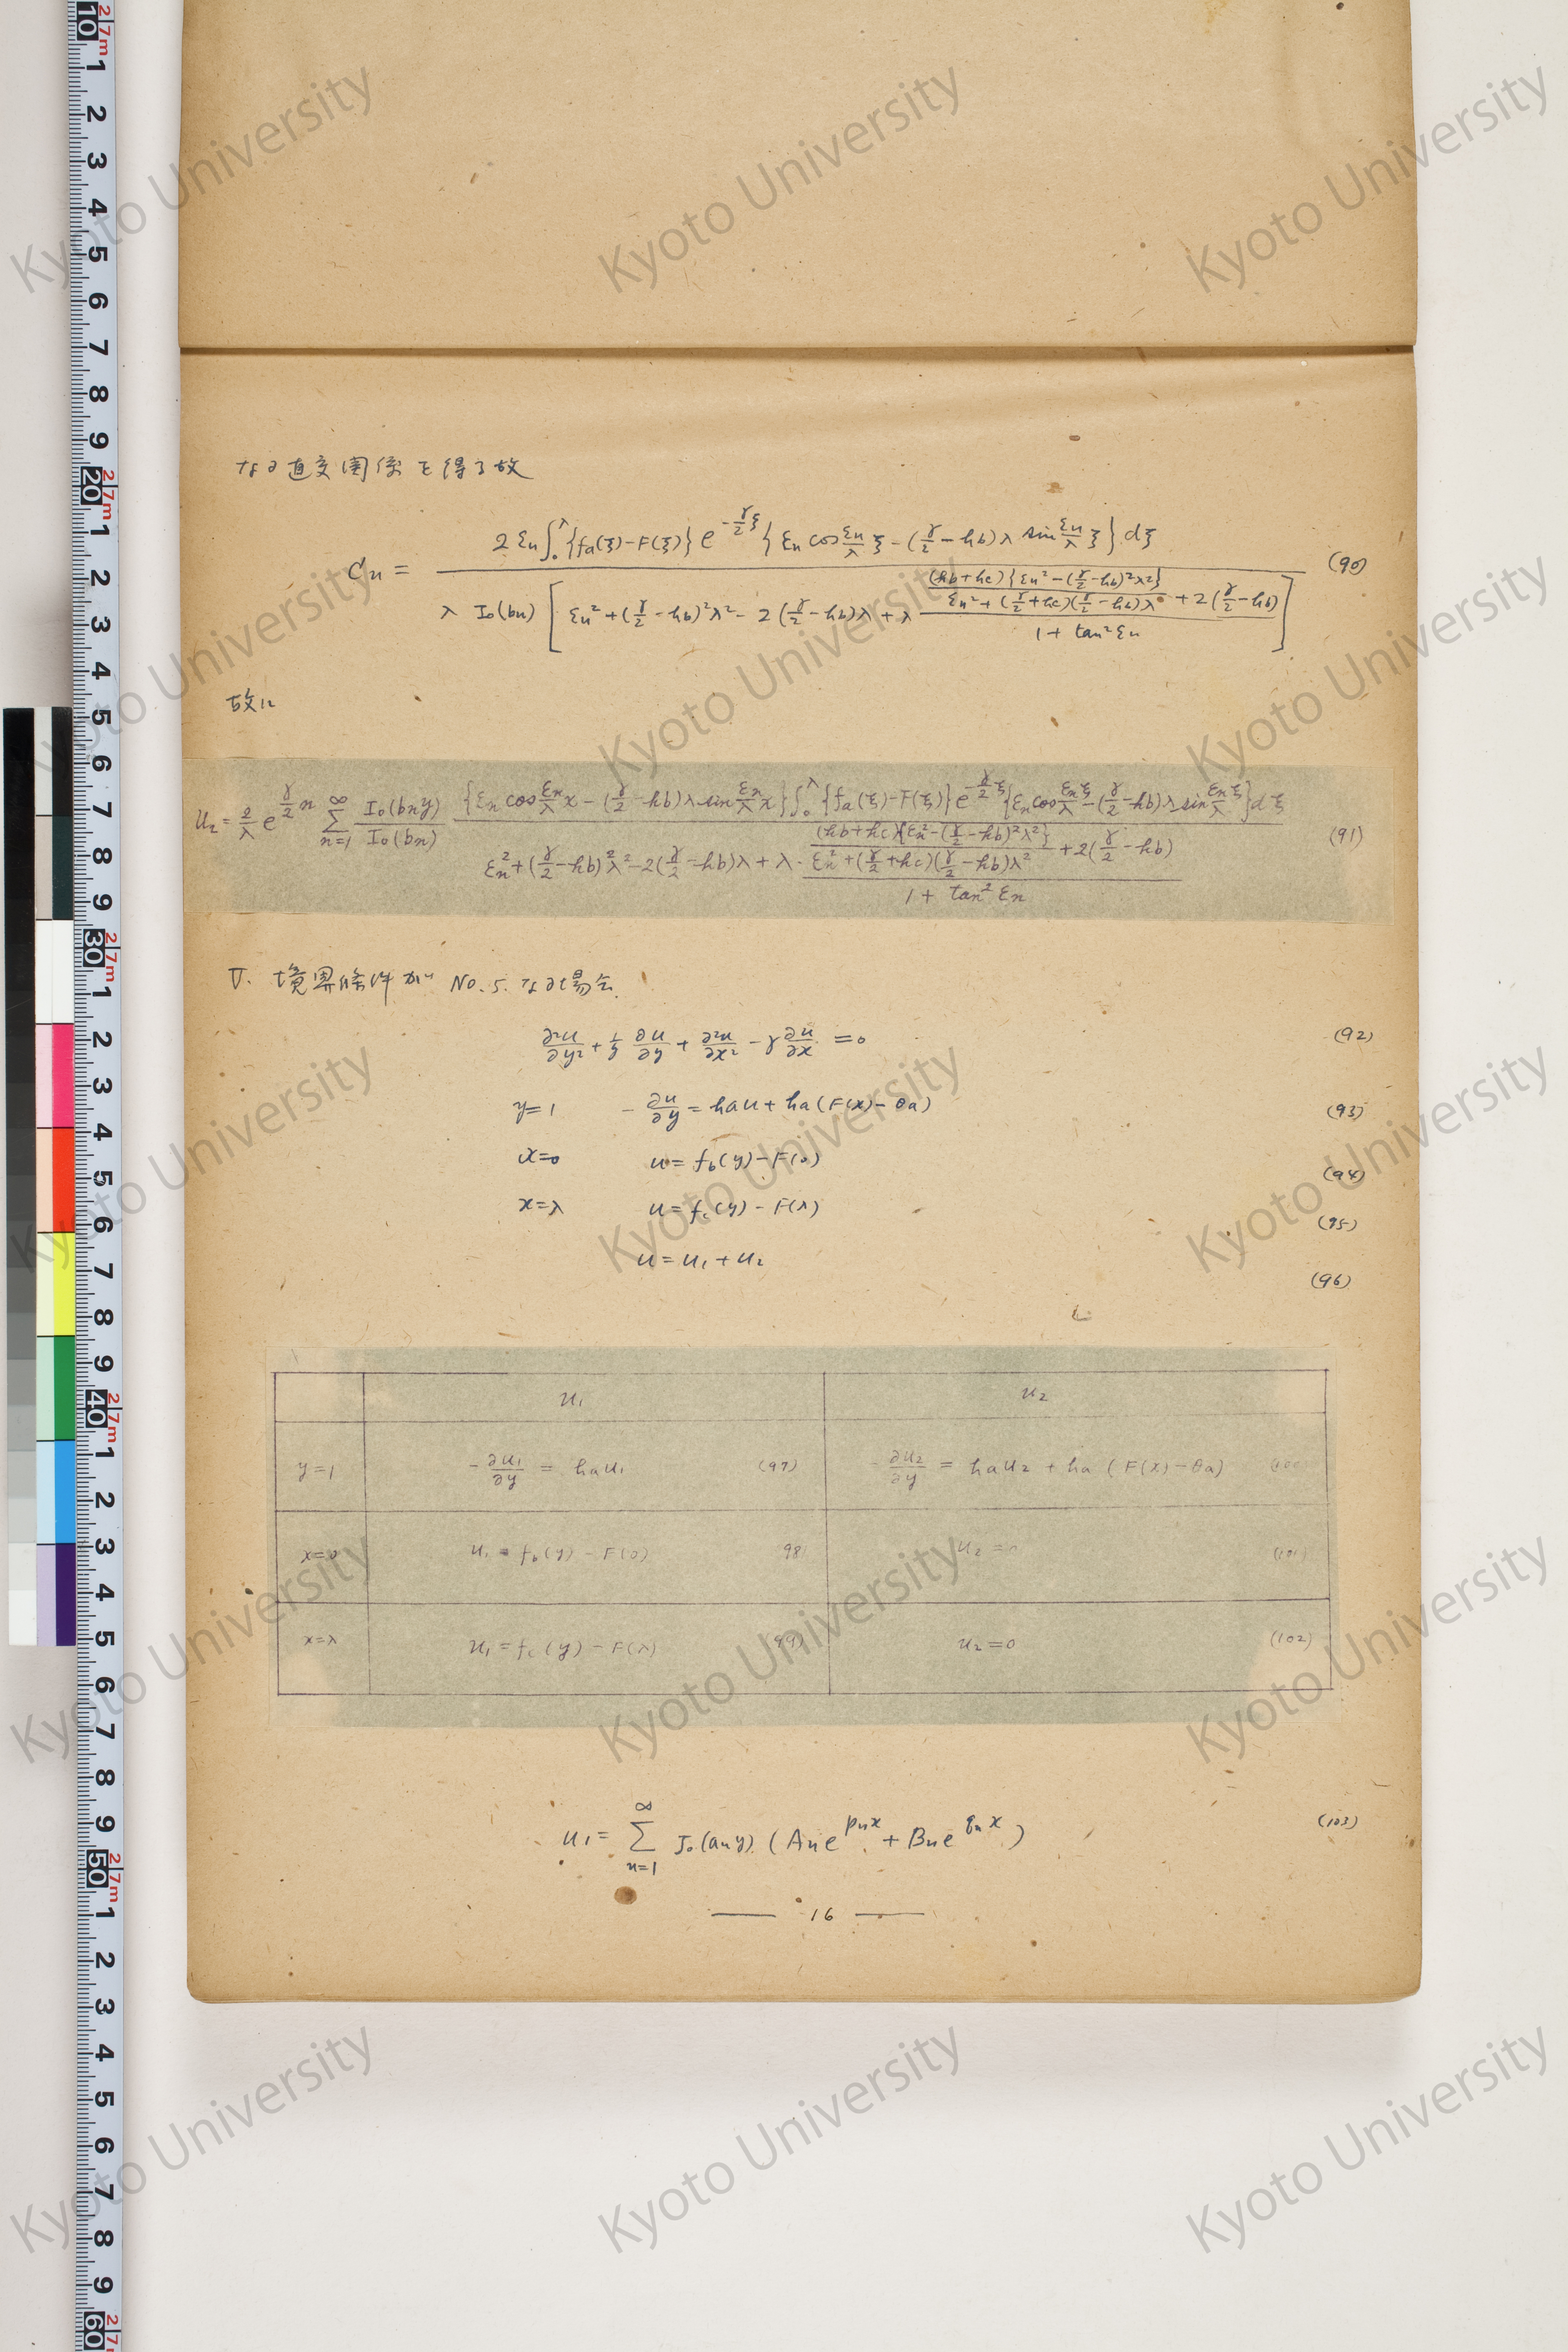 なる直交関係を得る故
Cn = 2εn∫₀^λ{fa(ξ)-F(ξ)}e^{-γ/2 ξ}{εn cos εn/λ ξ-(γ/2-hb)λ sin εn/λ ξ}dξ / λ I₀(bn)[εn²+(γ/2-hb)²λ²-2(γ/2-hb)λ+λ ((hb+hc){εn²-(γ/2-hb)²λ²}/(εn²+(γ/2+hc)(γ/2-hb)λ²)+2(γ/2-hb))/(1+tan²εn)] (90)
故に
U₂=2/λ e^{γ/2 x} Σ_{n=1}^∞ I₀(bny)/I₀(bn) {εn cos εn/λ x-(γ/2-hb)λ sin εn/λ x}∫₀^λ{fa(ξ)-F(ξ)}e^{-γ/2 ξ}{εn cos εn/λ ξ-(γ/2-hb)λ sin εn/λ ξ}dξ / εn²+(γ/2-hb)²λ²-2(γ/2-hb)λ+λ·((hb+hc){εn²-(γ/2-hb)²λ²}/(εn²+(γ/2+hc)(γ/2-hb)λ²)+2(γ/2-hb))/(1+tan²εn) (91)
V. 境界條件が No.5. なる場合.
∂²u/∂y²+1/y ∂u/∂y+∂²u/∂x²-γ∂u/∂x=0 (92)
y=1 -∂u/∂y=hau+ha(F(x)-θa) (93)
x=0 u=fb(y)-F(0) (94)
x=λ u=fc(y)-F(λ) (95)
u=u₁+u₂ (96)
u₁ u₂
y=1 -∂u₁/∂y = hau₁ (97) -∂u₂/∂y = hau₂+ha(F(x)-θa) (100)
x=0 u₁=fb(y)-F(0) (98) u₂=0 (101)
x=λ u₁=fc(y)-F(λ) (99) u₂=0 (102)
u₁= Σ_{n=1}^∞ J₀(any)(An e^{pnx}+Bn e^{qnx}) (103)
— 16 —